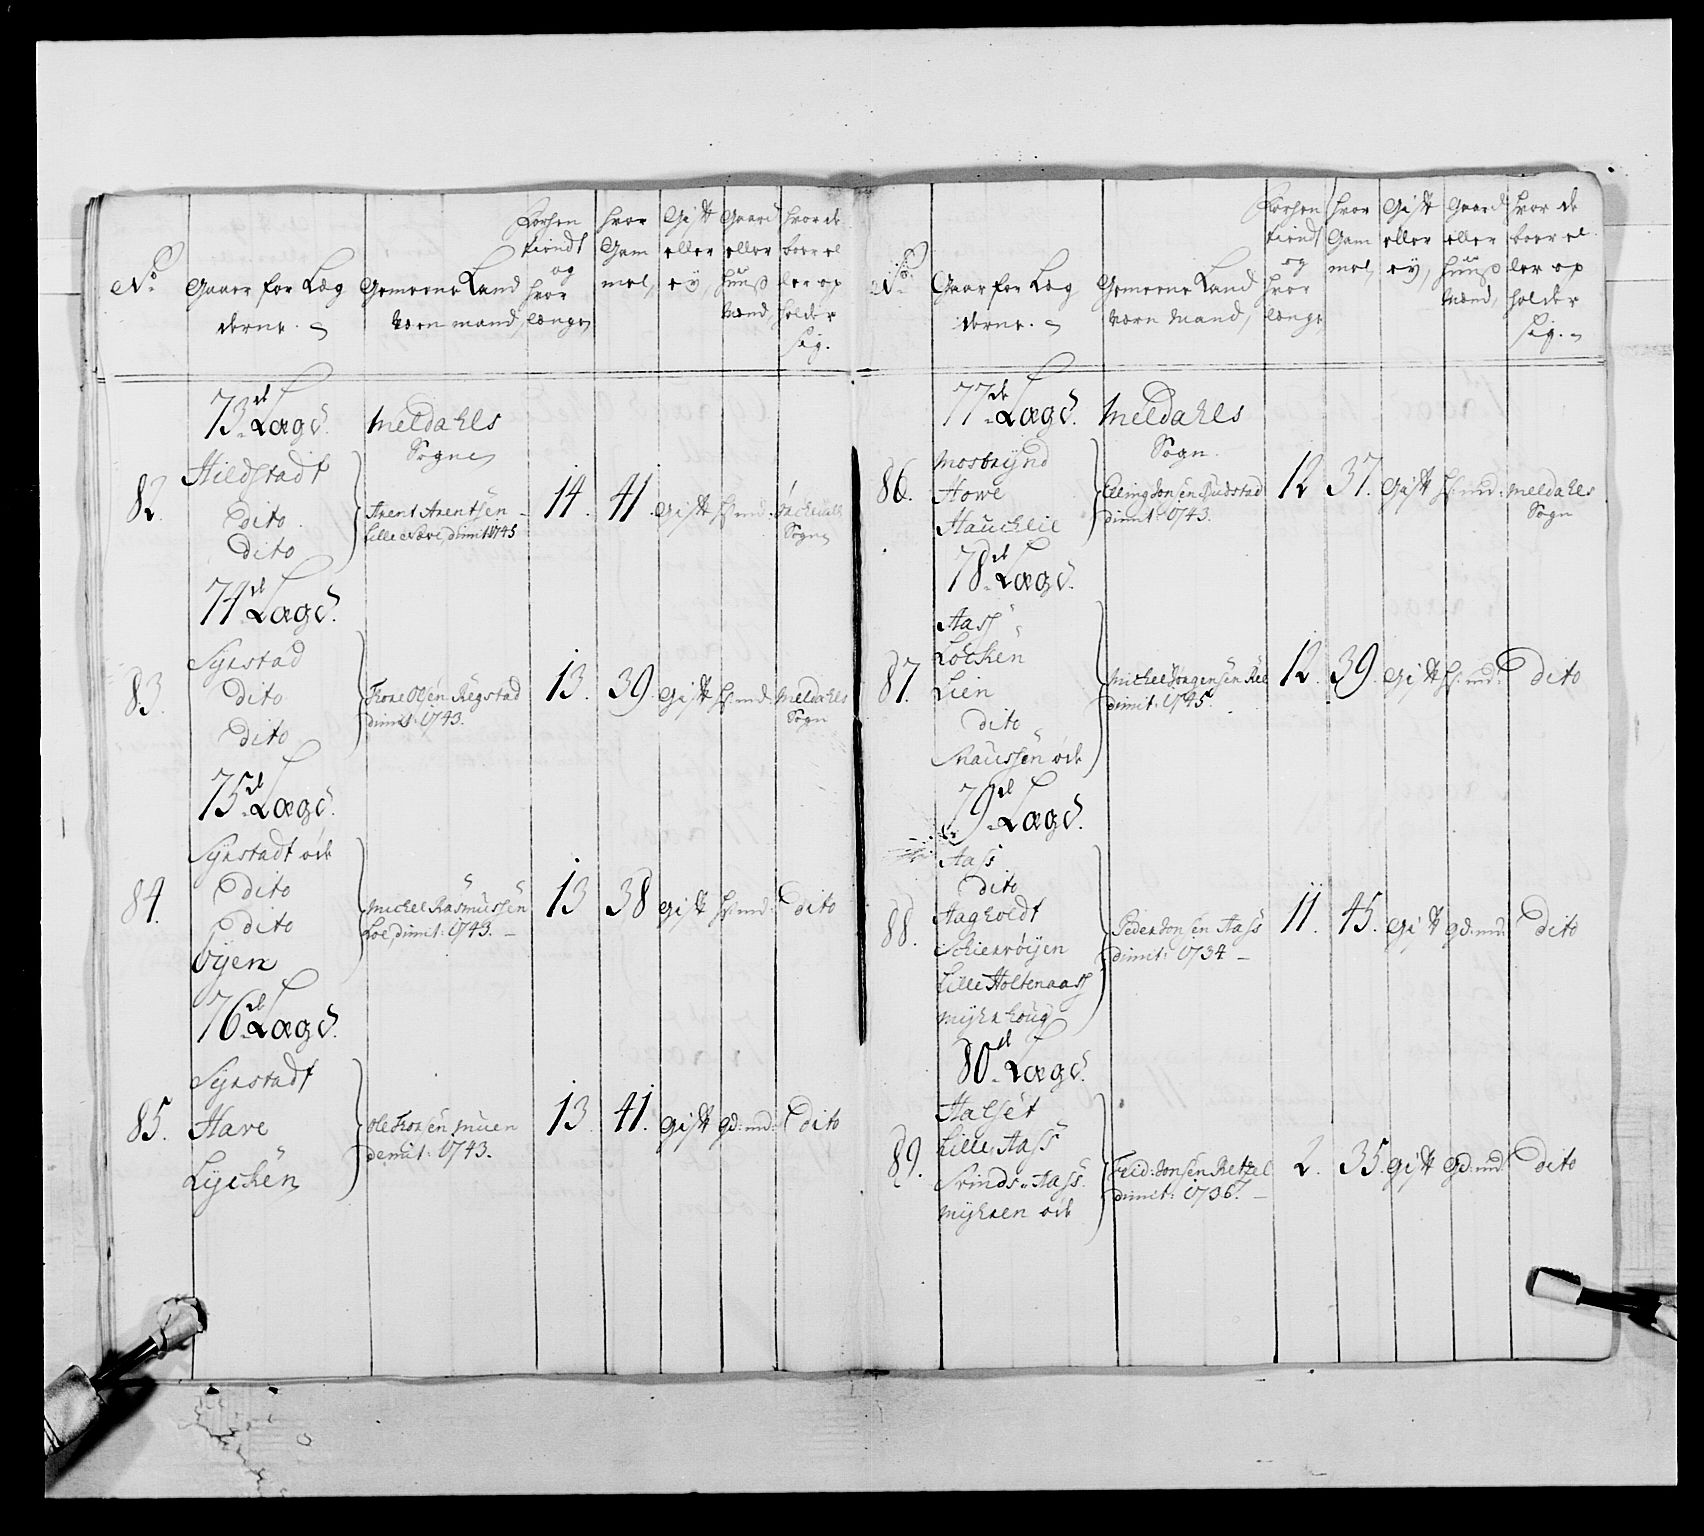 No
Gaarer for Læg
derne.
Gemeene Land
Værn mand,
Forhen
tiendt
og
hvor
længe
hvor
Gam
mel,
Gift
eller
ey,
Gaard
eller
huus
Mænd,
hvor de
boer el
ler op
holder
sig.
73de Lægd.
Meldahls
Sogn
82.
Hildstadt
Dito
Dito
Arent Arentsen
Lille dimit: 1745
14.
41.
Gift
hs: md:
Sogn
74de Lægd.
83.
Syrstad
dito
dito
Tore Olsen Regstad
dimit: 1743.
13.
39.
Gift
hs: md:
Meldahls
Sogn
75de Lægd.
84.
Syrstadt øde
Dito
Dito
Öyen
Michel Rasmussen
Loe, dimit: 1743.
13
38
Gift
hs: md:
Dito
76de Lægd.
85.
Syrstadt
Hare
Lychen
Ole Torsen Muen
demit: 1743.
13.
41.
Gift
gd: md:
Dito
No
Gaar for Læg
derne.
Gemeene Land
Værn Mand,
Forhen
tiendt
og
hvor
længe
hvor
Gam
mel,
Gift
eller
ey,
Gaard
eller
huus
Mænd,
hvor de
boer el
ler op
holder
sig.
77de Lægd.
Meldahls
Sogn.
86.
Mosbrynd
Howe
Hauchlie
Elling Jonsen
dimit: 1743.
12
37.
Gift
hs: md:
Meldahls
Sogn
78de Lægd.
87.
Aass
Löcken
Lien
dito
Snaussen øde
Michel Jörgensen Rel
dimit: 1745.
12.
39.
Gift
hs: md:
Dito
79de Lægd.
88.
Aass
dito
Aagholdt
Schierröyen
Lille Holtenaass
Myhrhoug
Peder Jonsen Aass
dimit: 1734
11.
45.
Gift
gd: md:
Dito
80de Lægd.
89.
Halset
Lille Aass
Svinds-Aass
Myhren øde
Frid: Jonsen Retzel
dimit: 1736.
2.
35.
Gift
gd: md:
Dito